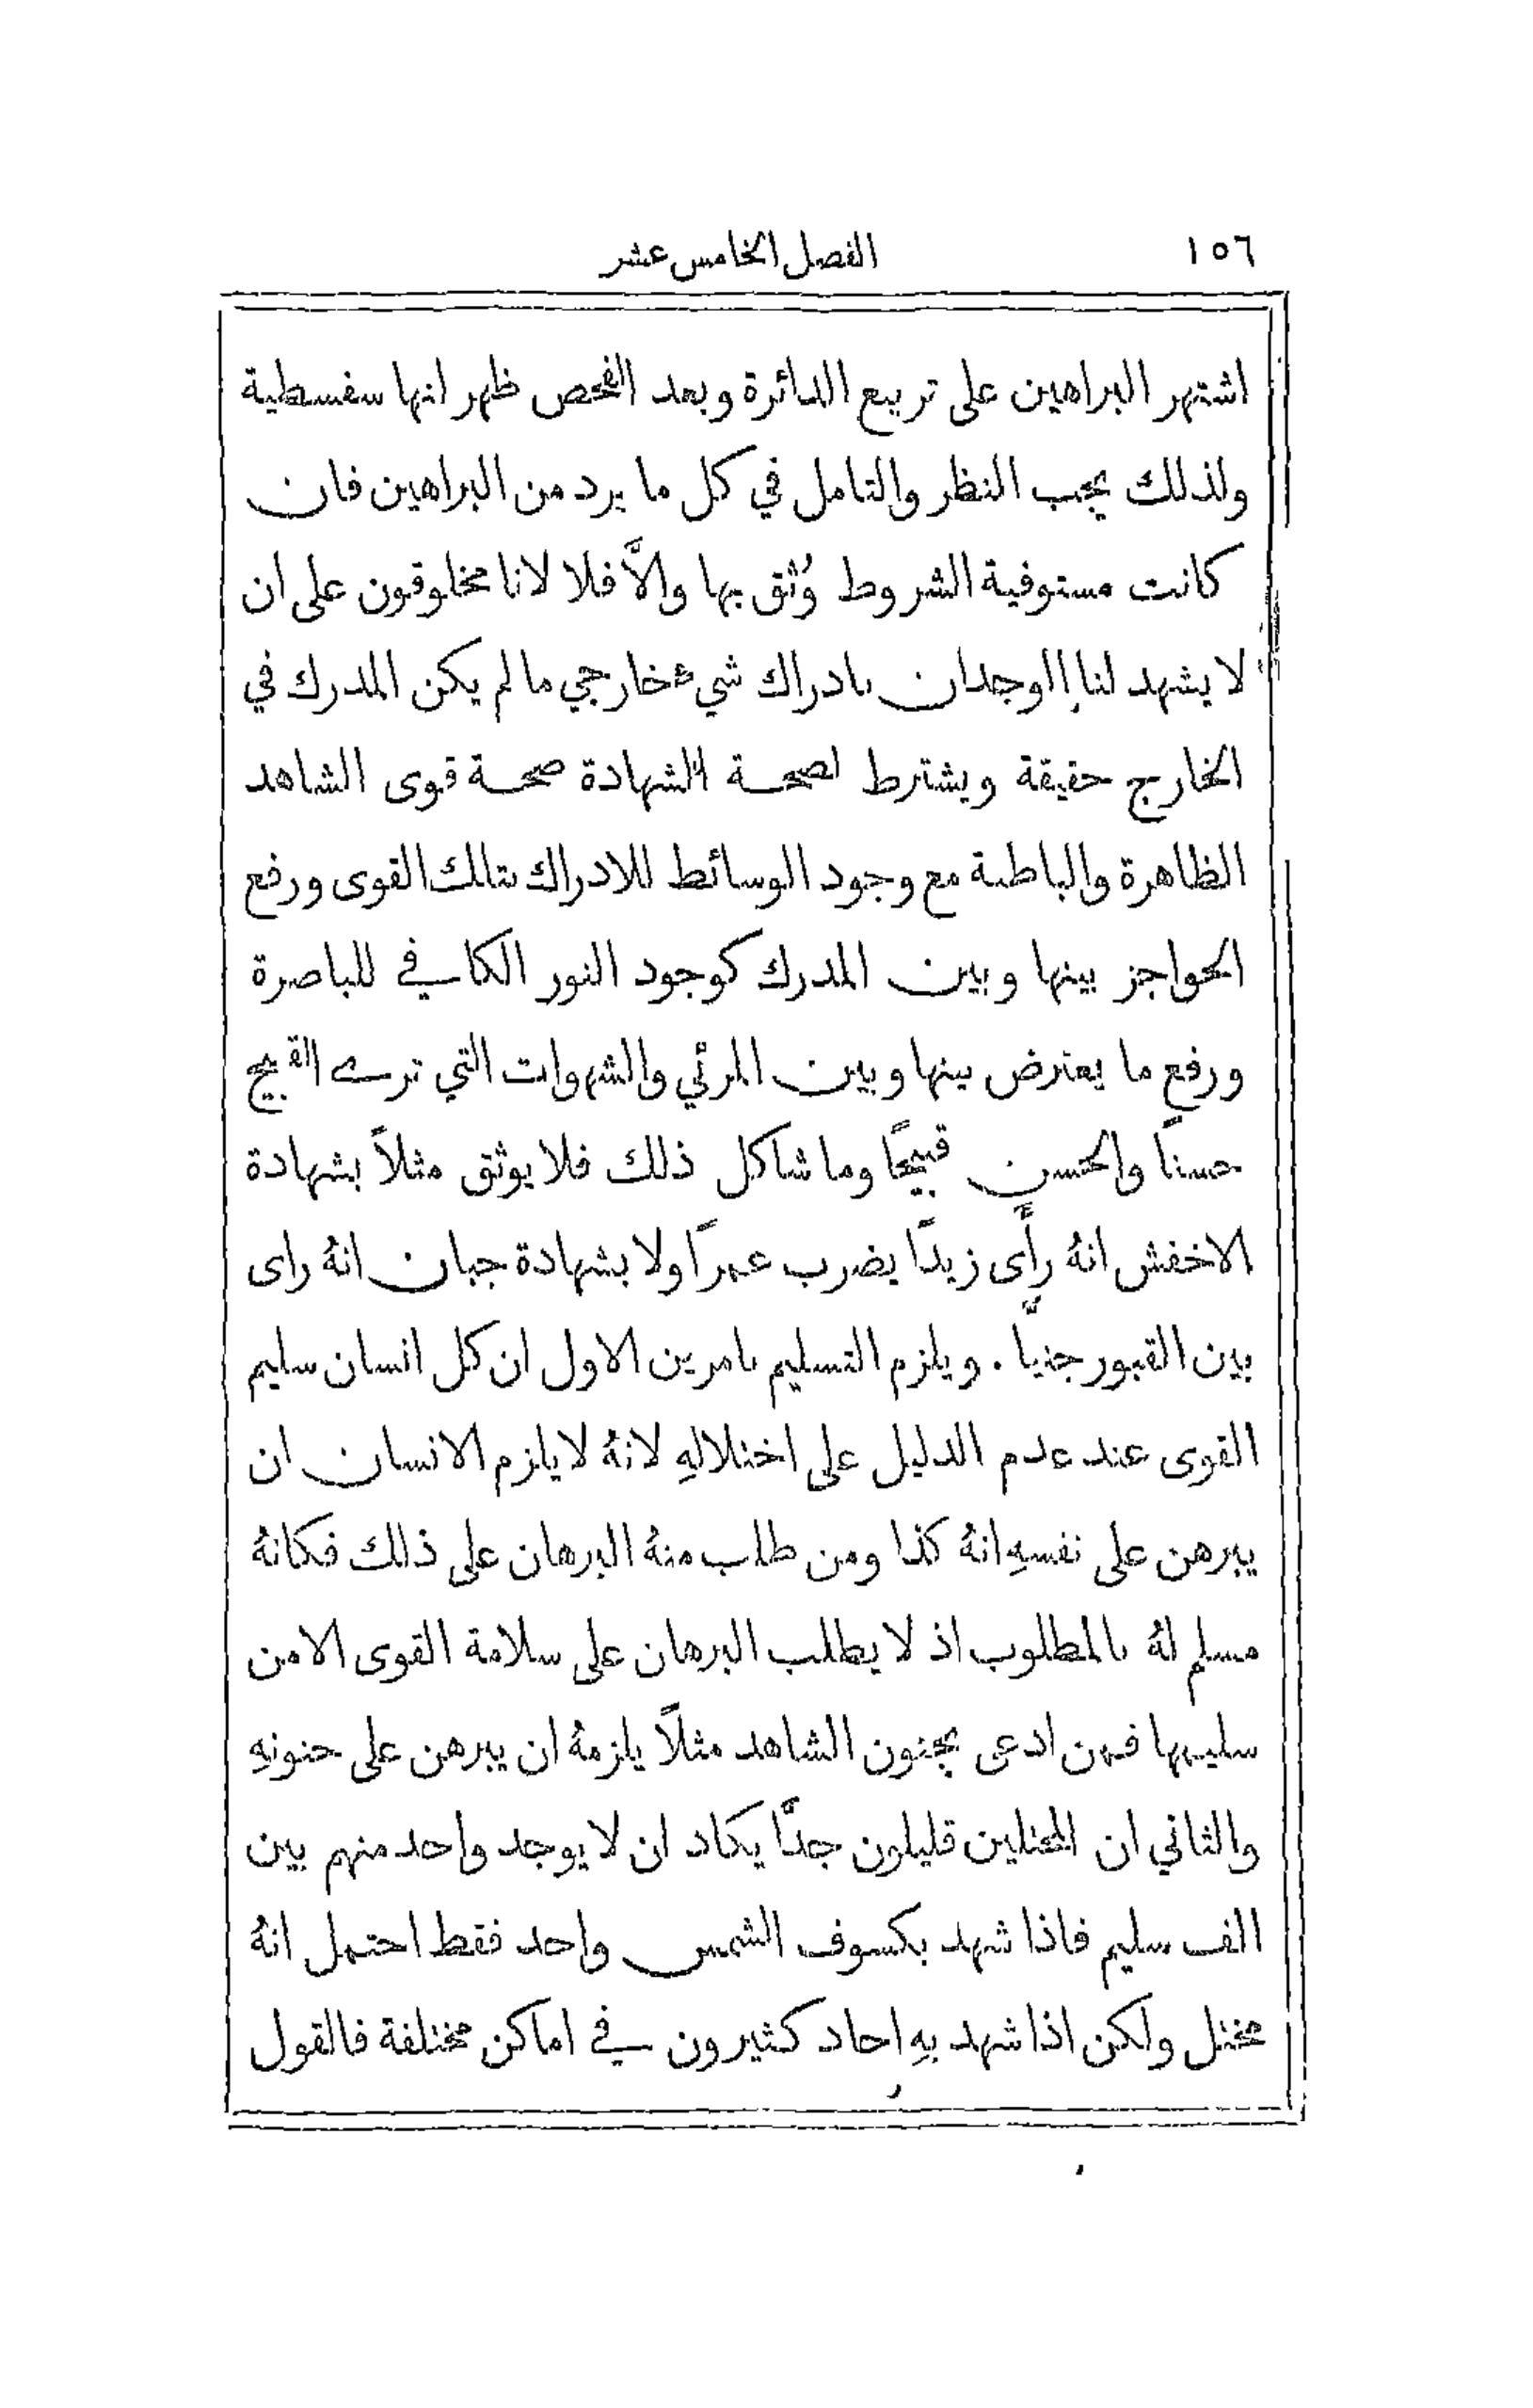 ١٥٦ الفصل الخامس عشر
اشتهر البراهين على تربيع الدائرة وبعد الفحص ظهر انها سفسطية
ولذلك يجب النظر والتامل في كل ما يرد من البراهين فان
كانت مستوفية الشروط وُثق بها والاَّ فلا لانا مخلوقون على ان
لا يشهد لنا الوجدان بادراك شيء خارجي ما لم يكن المدرك في
الخارج حقيقة ويشترط لصحة الشهادة صحة قوى الشاهد
الظاهرة والباطنة مع وجود الوسائط للادراك بتلك القوى ورفع
الحواجز بينها وبين المدرك كوجود النور الكافي للباصرة
ورفع ما يعترض بينها وبين المرئي والشهوات التي ترى القبيح
حسنًا والحسن قبيحًا وما شاكل ذلك فلا يوثق مثلاً بشهادة
الاخفش انهُ رأَى زيدًا يضرب عمرًا ولا بشهادة جبان انهُ راى
بين القبور جنيًّا . ويلزم التسليم بامرين الاول ان كل انسان سليم
القوى عند عدم الدليل على اختلالهِ لانهُ لا يلزم الانسان ان
يبرهن على نفسهِ انهُ كذا ومن طلب منهُ البرهان على ذلك فكانهُ
مسلم لهُ بالمطلوب اذ لا يطلب البرهان على سلامة القوى الا من
سليمها فمن ادعى بجنون الشاهد مثلاً يلزمهُ ان يبرهن على جنونهِ
والثاني ان المختلين قليلون جدًّا يكاد ان لا يوجد واحد منهم بين
الف سليم فاذا شهد بكسوف الشمس واحد فقط احتمل انهُ
مختل ولكن اذا شهد بهِ احاد كثيرون في اماكن مختلفة فالقول